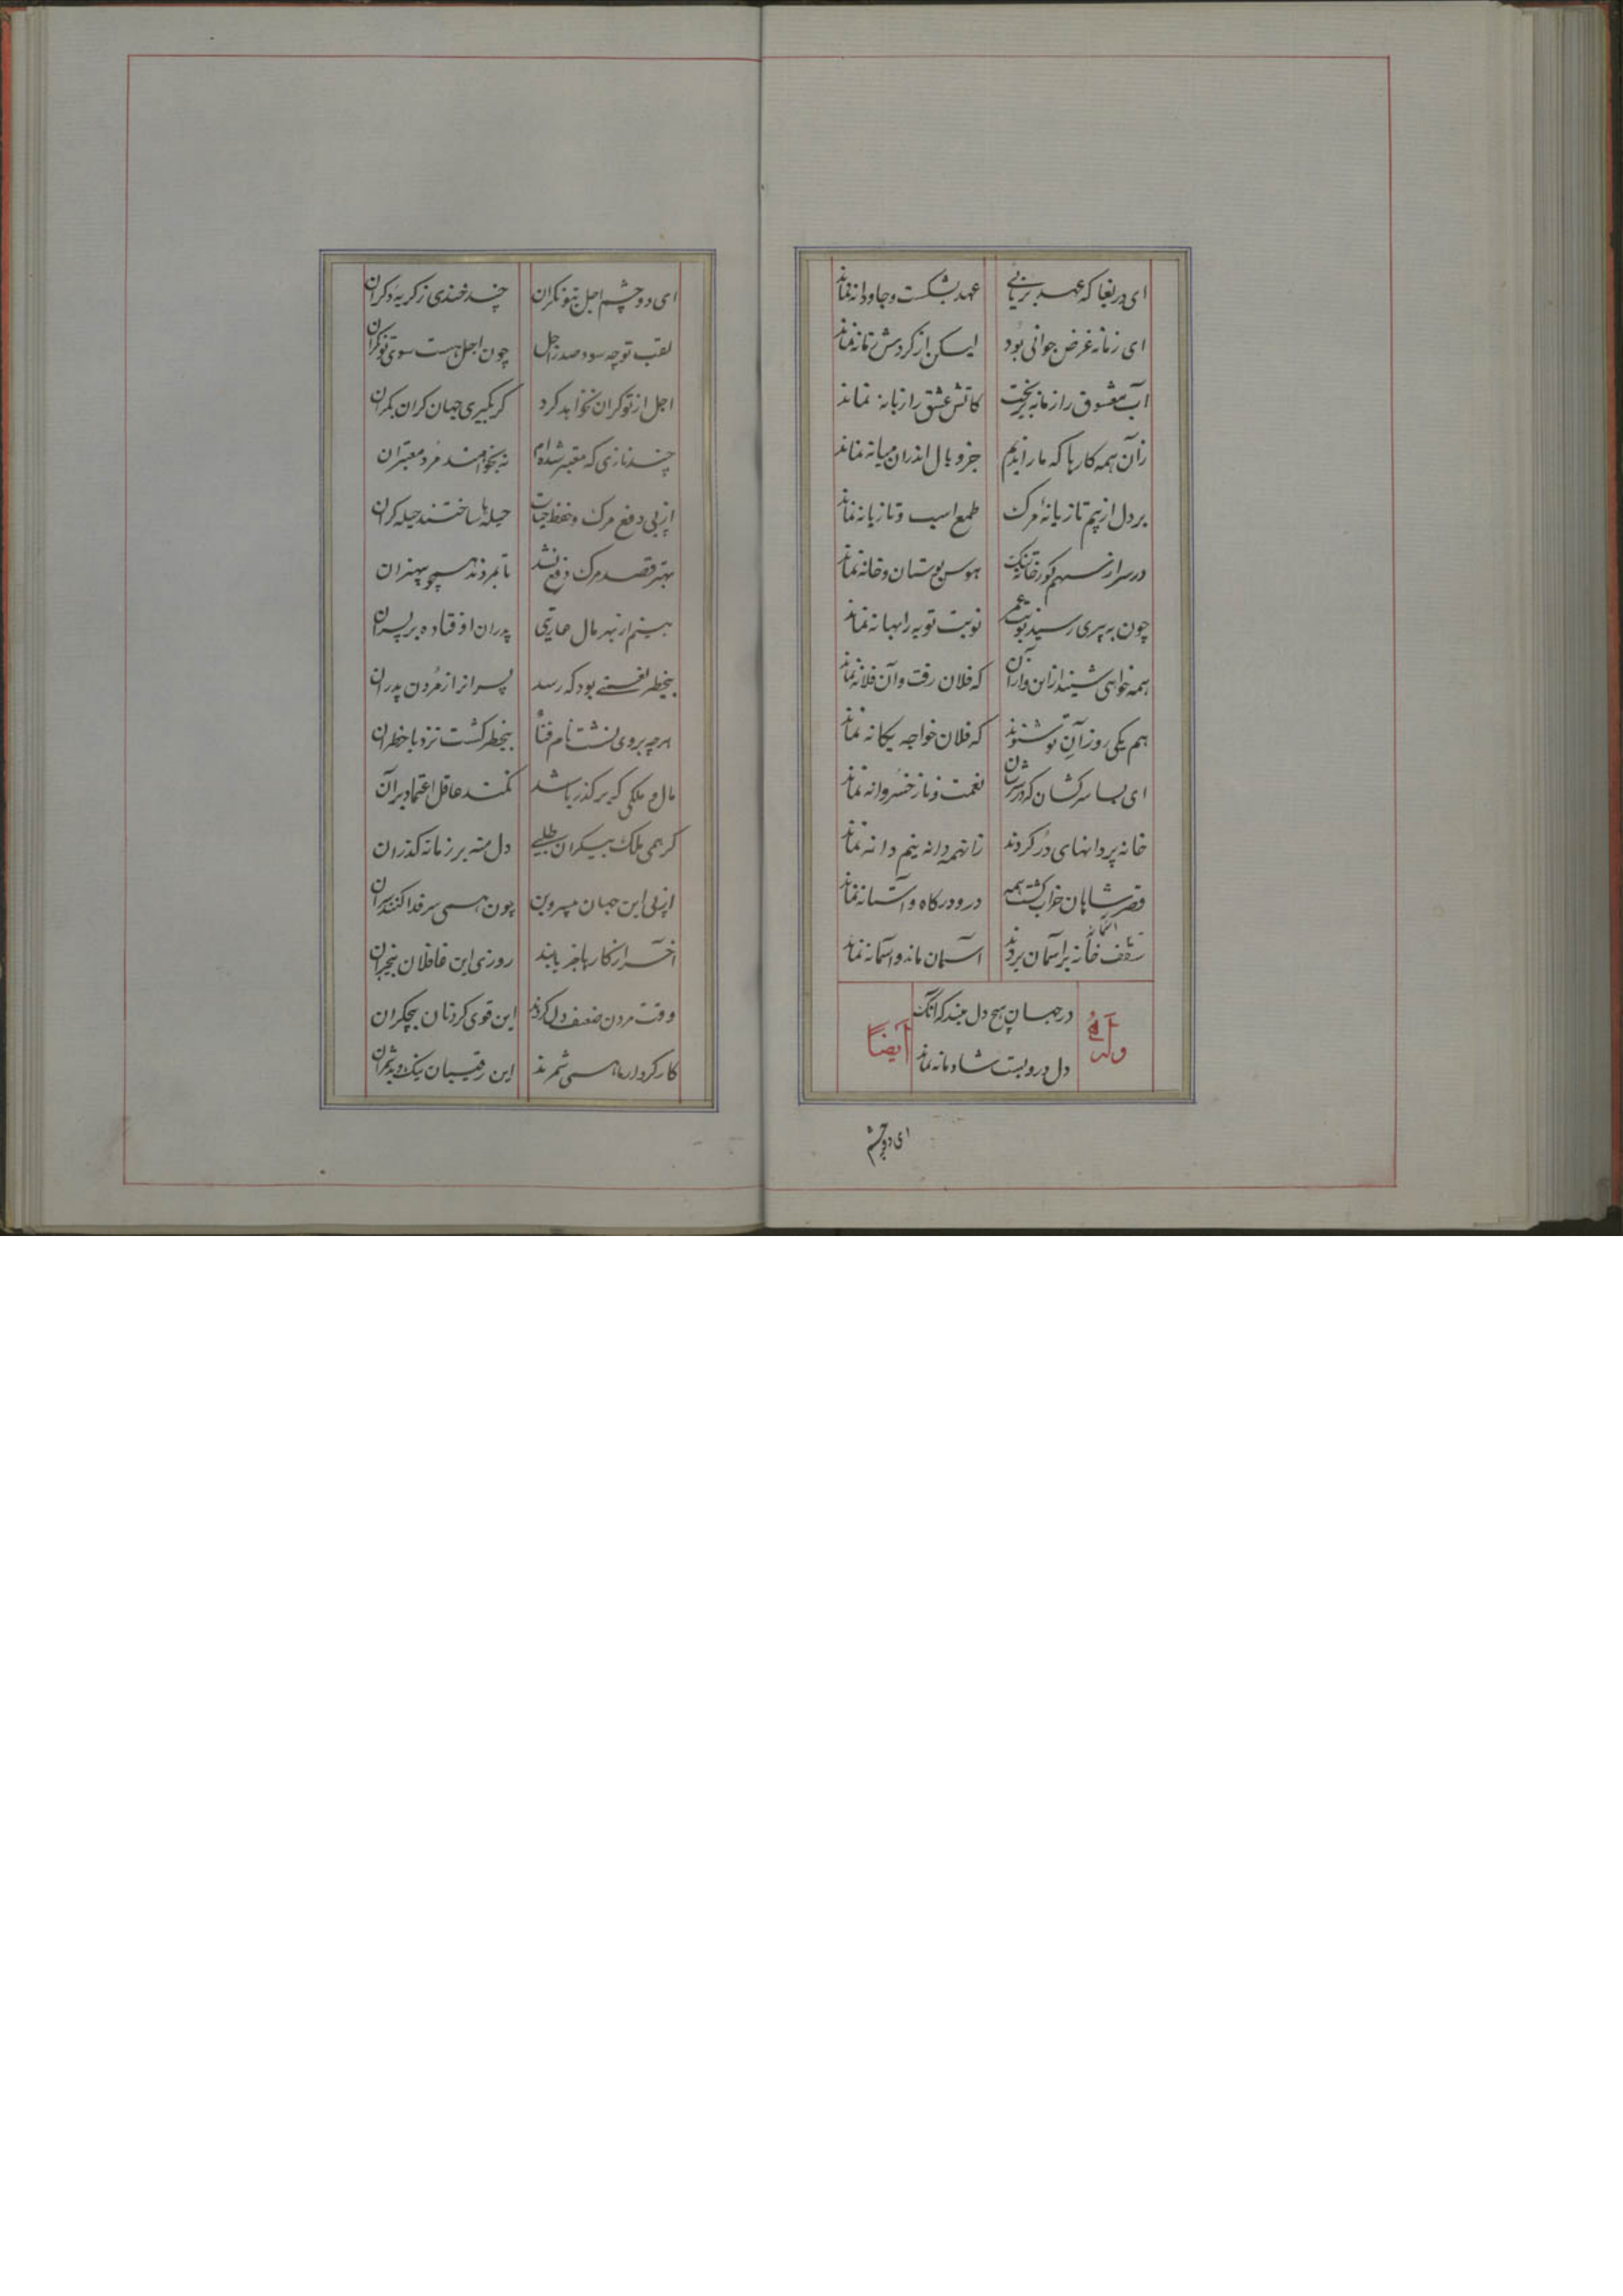 ای دریغا که عهد برنایی عهد بشکست و جاودانه نماند
ای زمانه غرض جوانی بود لیکن از کردش زمانه نماند
آب معشوق را زمانه بریخت کاتش عشق را زبانه نماند
زآن همه کارها که ما راندیم جز وبال اندران میانه نماند
بر دل از بیم تازیانهٔ مرک طمع اسب و تازیانه نماند
در سر از سهم کورخانهٔ تنک هوس بوستان و خانه نماند
چون به پیری رسید نوبت عمر نوبت توبه را بهانه نماند
همه خواهی شنید از این و از آن که فلان رفت و آن فلانه نماند
هم یکی روز آنِ تو شنوند که فلان خواجه یکانه نماند
ای بسا سرکشان که در سرشان نعمت و ناز خسروانه نماند
خانه پر دانهای دُر کردند زانهمه دانه نیم دانه نماند
قصر شاهان خراب کشت همه در و درکاه و آستانه نماند
سقف خانه بر آسمان بردند آسمان ماند و آسمانه نماند
در جهان هیچ دل مبند که آنک
دل درو بست شادمانه نماند
وله ایضاً
ای دو چشم
ای دو چشم اجل بتو نکران چند خندی ز کریهٔ دکران
لقب تو چه سود صدر اجل چون اجل هست سوی تو نکران
اجل از تو کران نخواهد کرد کر بکیری جهان کران بکران
چند نازی که معتبر شده‌ام نه بخواهند مرد معتبران
از پی دفع مرک و حفظ حیات حیله‌ها ساختند حیله کران
بهنر قصد مرک دفع نشد تا بمردند همچو بیهنران
بینم از بهر مال عاریتی پدران اوفتاده بر پسران
بیخطر نعمتی بود که رسد پسرانرا ز مردن پدران
هرچه بر وی نشست نام فنا بیخطر کشت نزد با خطران
مال و ملکی که بر کذر باشد نکند عاقل اعتماد بر آن
کر همی ملک بیکران طلبی دل منه بر زمانه کذران
از پی این جهان بی سر و بن چون همی سر فدا کنند سران
آخر از کارها خبر یابند روزی این غافلان بیخبران
وقت مردن ضعیف دل کردند این قوی کردنان بیجکران
کار کردارها همی شمرند این رقیبان نیک و بد شمران